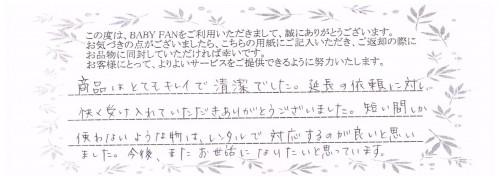 この度は、BABY FANをご利用いただきまして、誠にありがとうございます。
お気づきの点がございましたら、こちらの用紙にご記入いただき、ご返却の際に
お品物に同封していただければ幸いです。
お客様にとって、よりよいサービスをご提供できるように努力いたします。
商品はとてもキレイで清潔でした。延長の依頼に対し、
快く受け入れていただきありがとうございました。短い間しか
使わないような物は、レンタルで対応するのが良いと思い
ました。今後、またお世話になりたいと思っています。